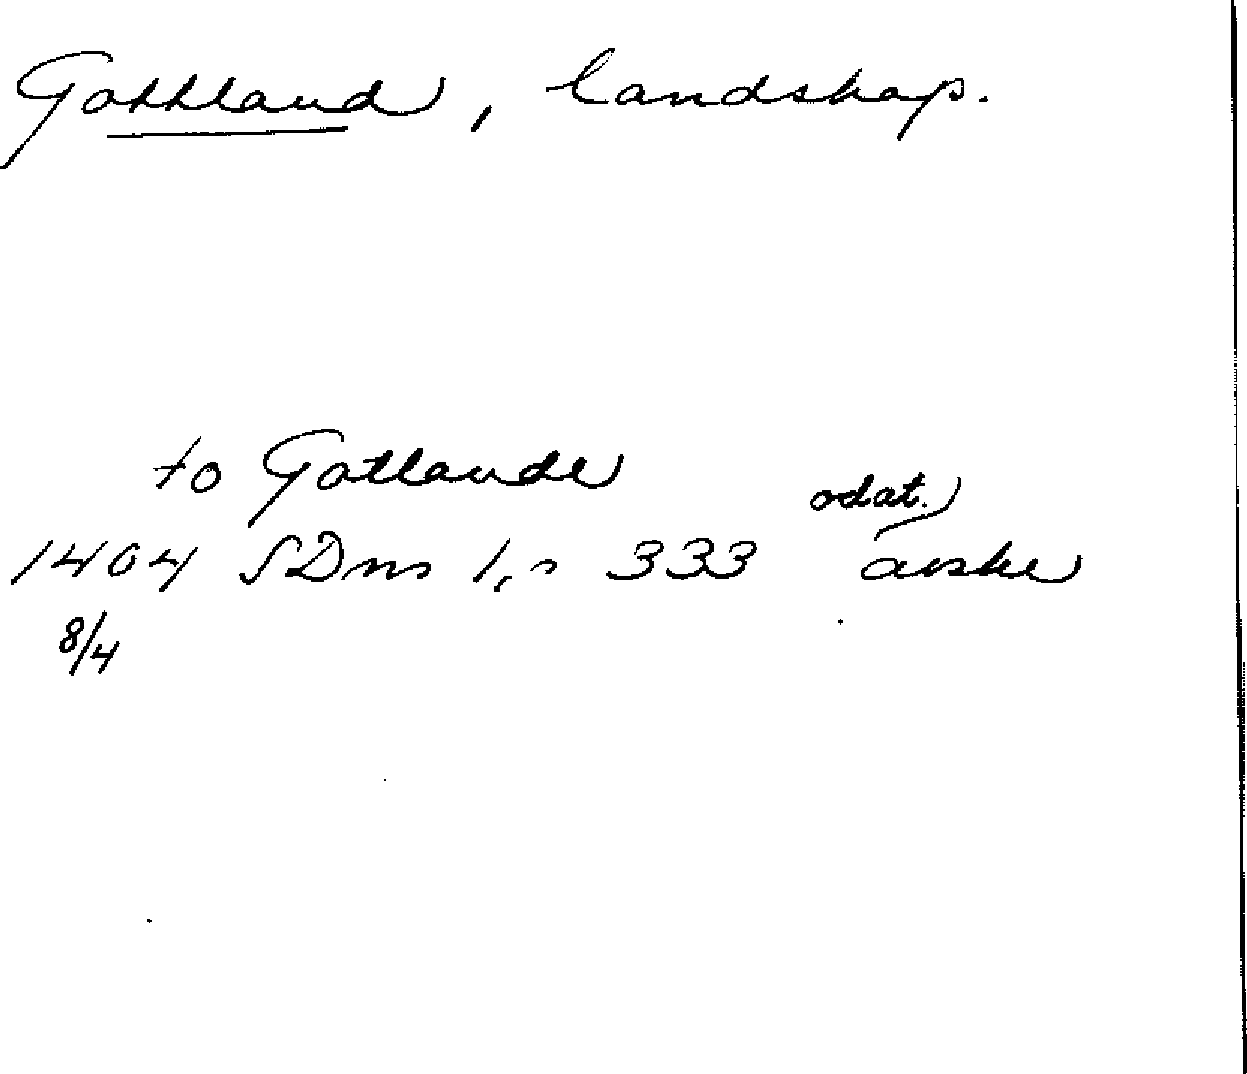 Gottland, landskap.
to Gotlande
odat.)
1404 SDns 1, n 333 avskr
8/4